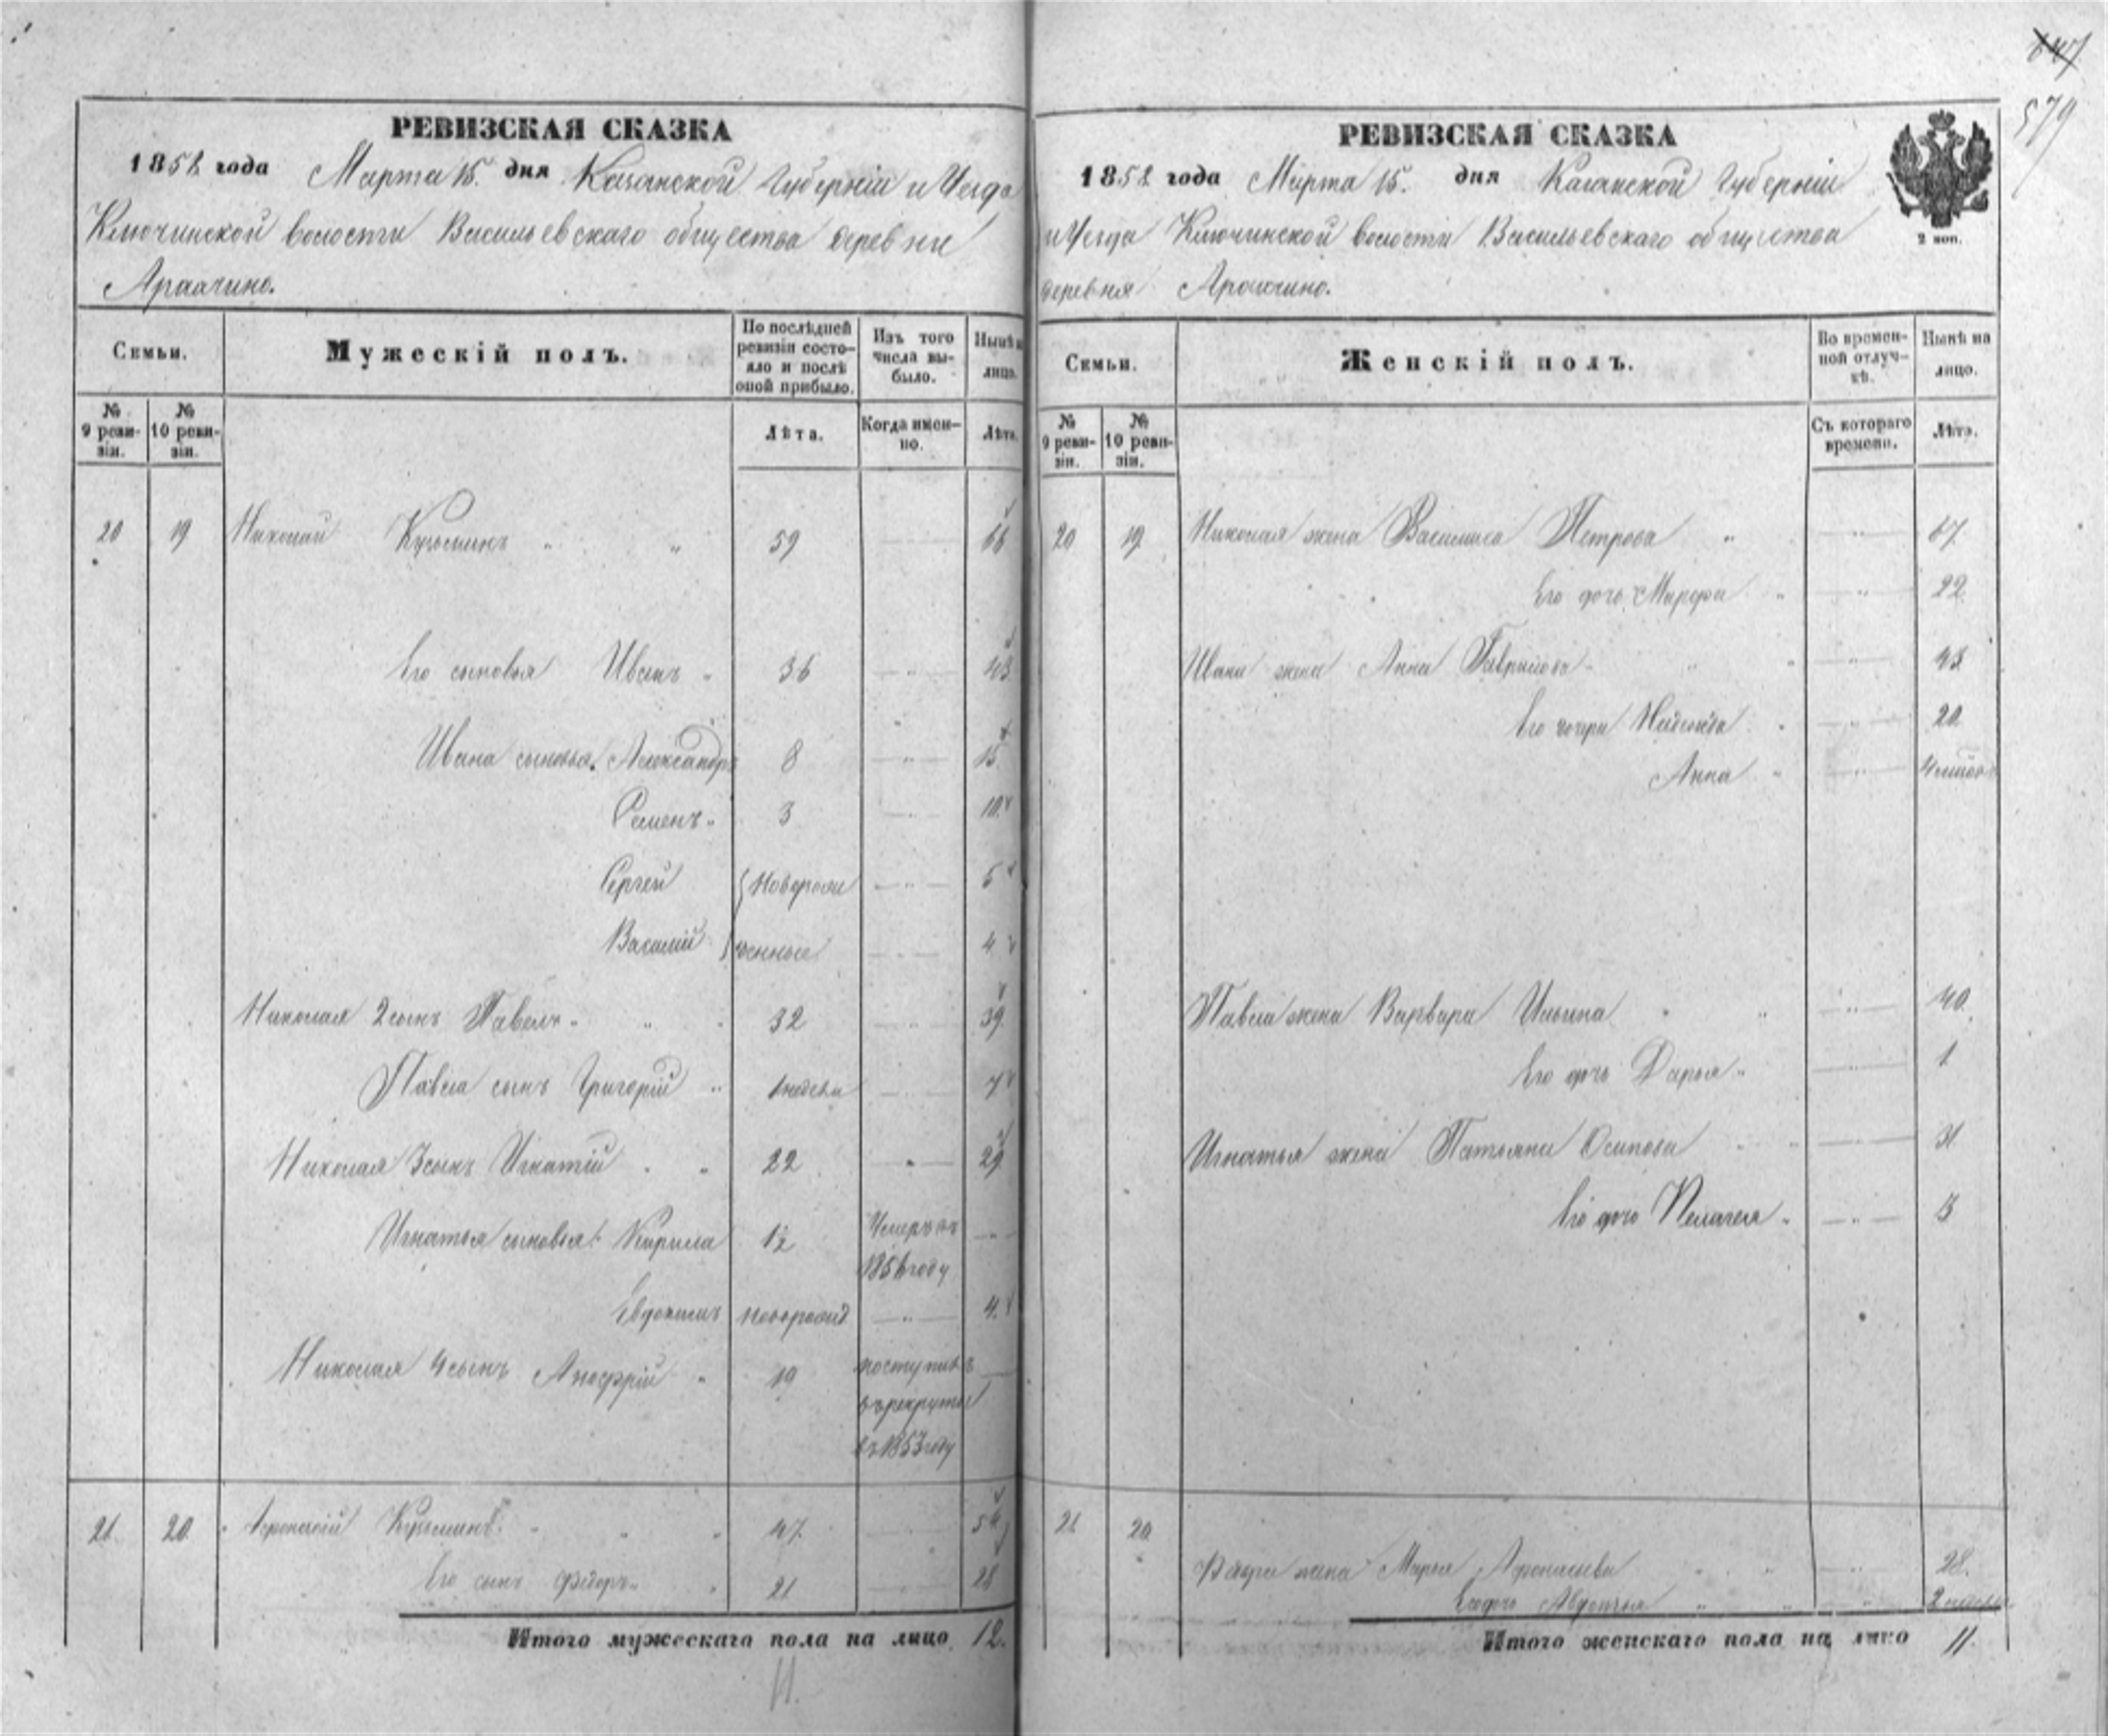 РЕВИЗСКАЯ СКАЗКА
1858 года Марта 15. дня Казанской Губернiи и Уезда
Ключинской волости Васильевскаго общества деревни
Аракчино.
Семьи.
Мужескiй полъ.
По послѣдней ревизiи состо-
яло и послѣ оной прибыло.
Изъ того числа вы-
было.
Нынѣ на лицо.
№ 9 реви-
зiи.
№ 10 реви-
зiи.
Лѣта.
Когда имен-
но.
Лѣта.
20 19 Николай Кузьминъ 59 66
Его сыновья Иванъ 36 43
Ивана сыновья Александръ 8 15
Семенъ 3 10
Сергей Новорож 5
Василiй денные 4
Николая 2 сынъ Павелъ 32 39
Павла сынъ Григорiй 1 недели 7
Николая 3 сынъ Игнатiй 22 29
Игнатья сыновья Кирила 1½ Умеръ въ
1856 году
Евдокимъ новорожд 4
Николая 4 сынъ Анофрiй 19 поступилъ
въ рекруты
въ 1853 году
21 20 Афонасiй Кузьминъ 47 54
Его сынъ Фёдоръ 21 28
Итого мужескаго пола на лицо 12.
11.
647
579
РЕВИЗСКАЯ СКАЗКА
1858 года Марта 15. дня Казанской Губернiи
и Уезда Ключинской волости Васильевскаго общества
деревня Аракчино.
2 коп.
Семьи.
Женскiй полъ.
Во времен-
ной отлуч-
кѣ.
Нынѣ на лицо.
№ 9 реви-
зiи.
№ 10 реви-
зiи.
Съ котораго времени.
Лѣта.
20 19 Николая жена Василиса Петрова 67
Его дочь Марфа 22
Ивана жена Анна Гаврилова 43
Его дочери Надежда 20
Анна
Павла жена Варвара Ильина 40
Его дочь Дарья 1
Игнатья жена Татьяна Осипова 31
Его дочь Пелагея
21 20
Фёдора жена Марья Афонасьева 28.
Его дочь Авдотья 2 недели
Итого женскаго пола на лицо 11.